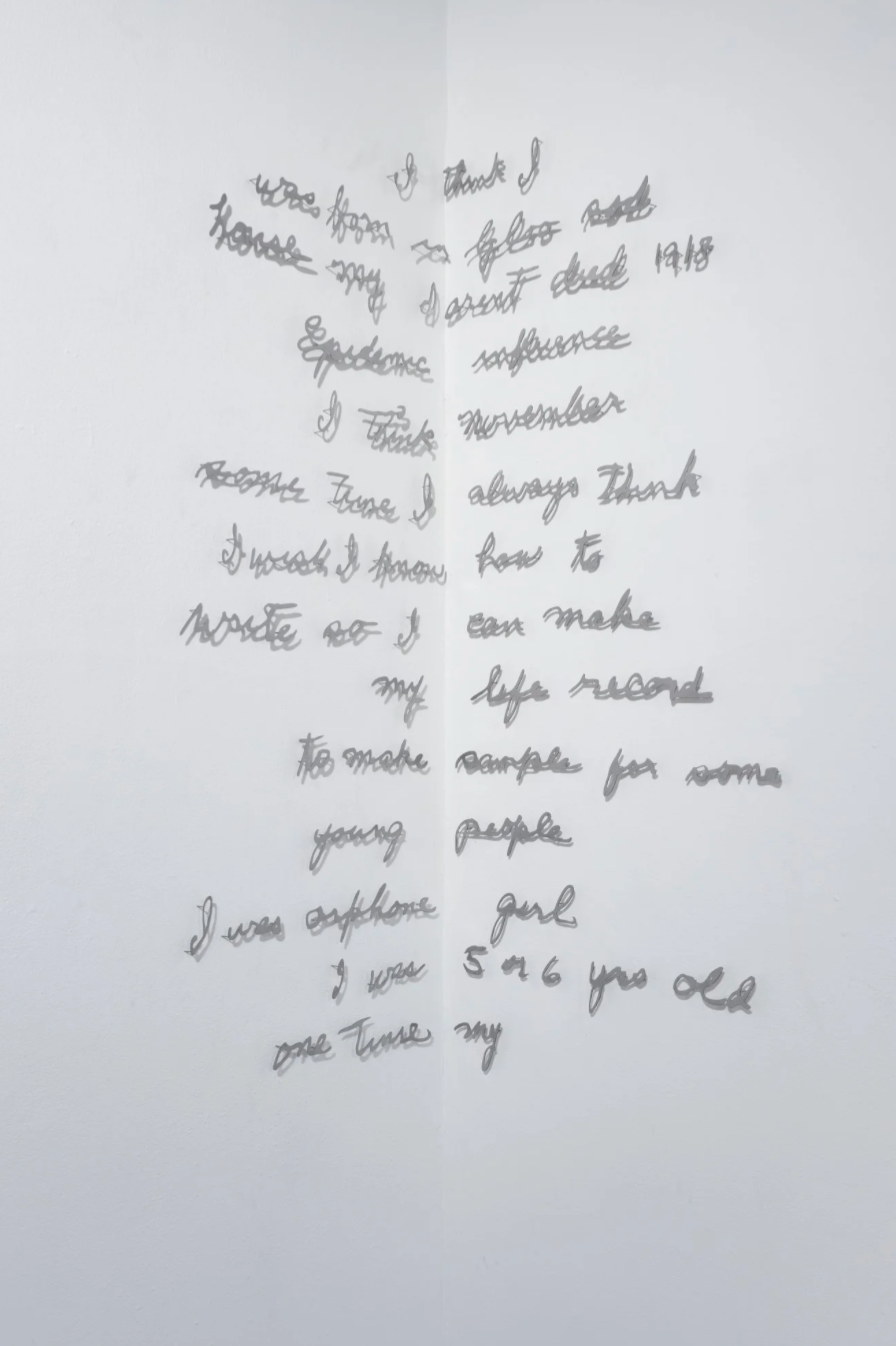 I think I
was born in Igloo sod
house my parent died 1918
Epidemic influence
I think november
some time I always think
I wish I know how to
write so I can make
my life record
to make sample for some
young people
I was orphone girl
I was 5 or 6 yrs old
one time my